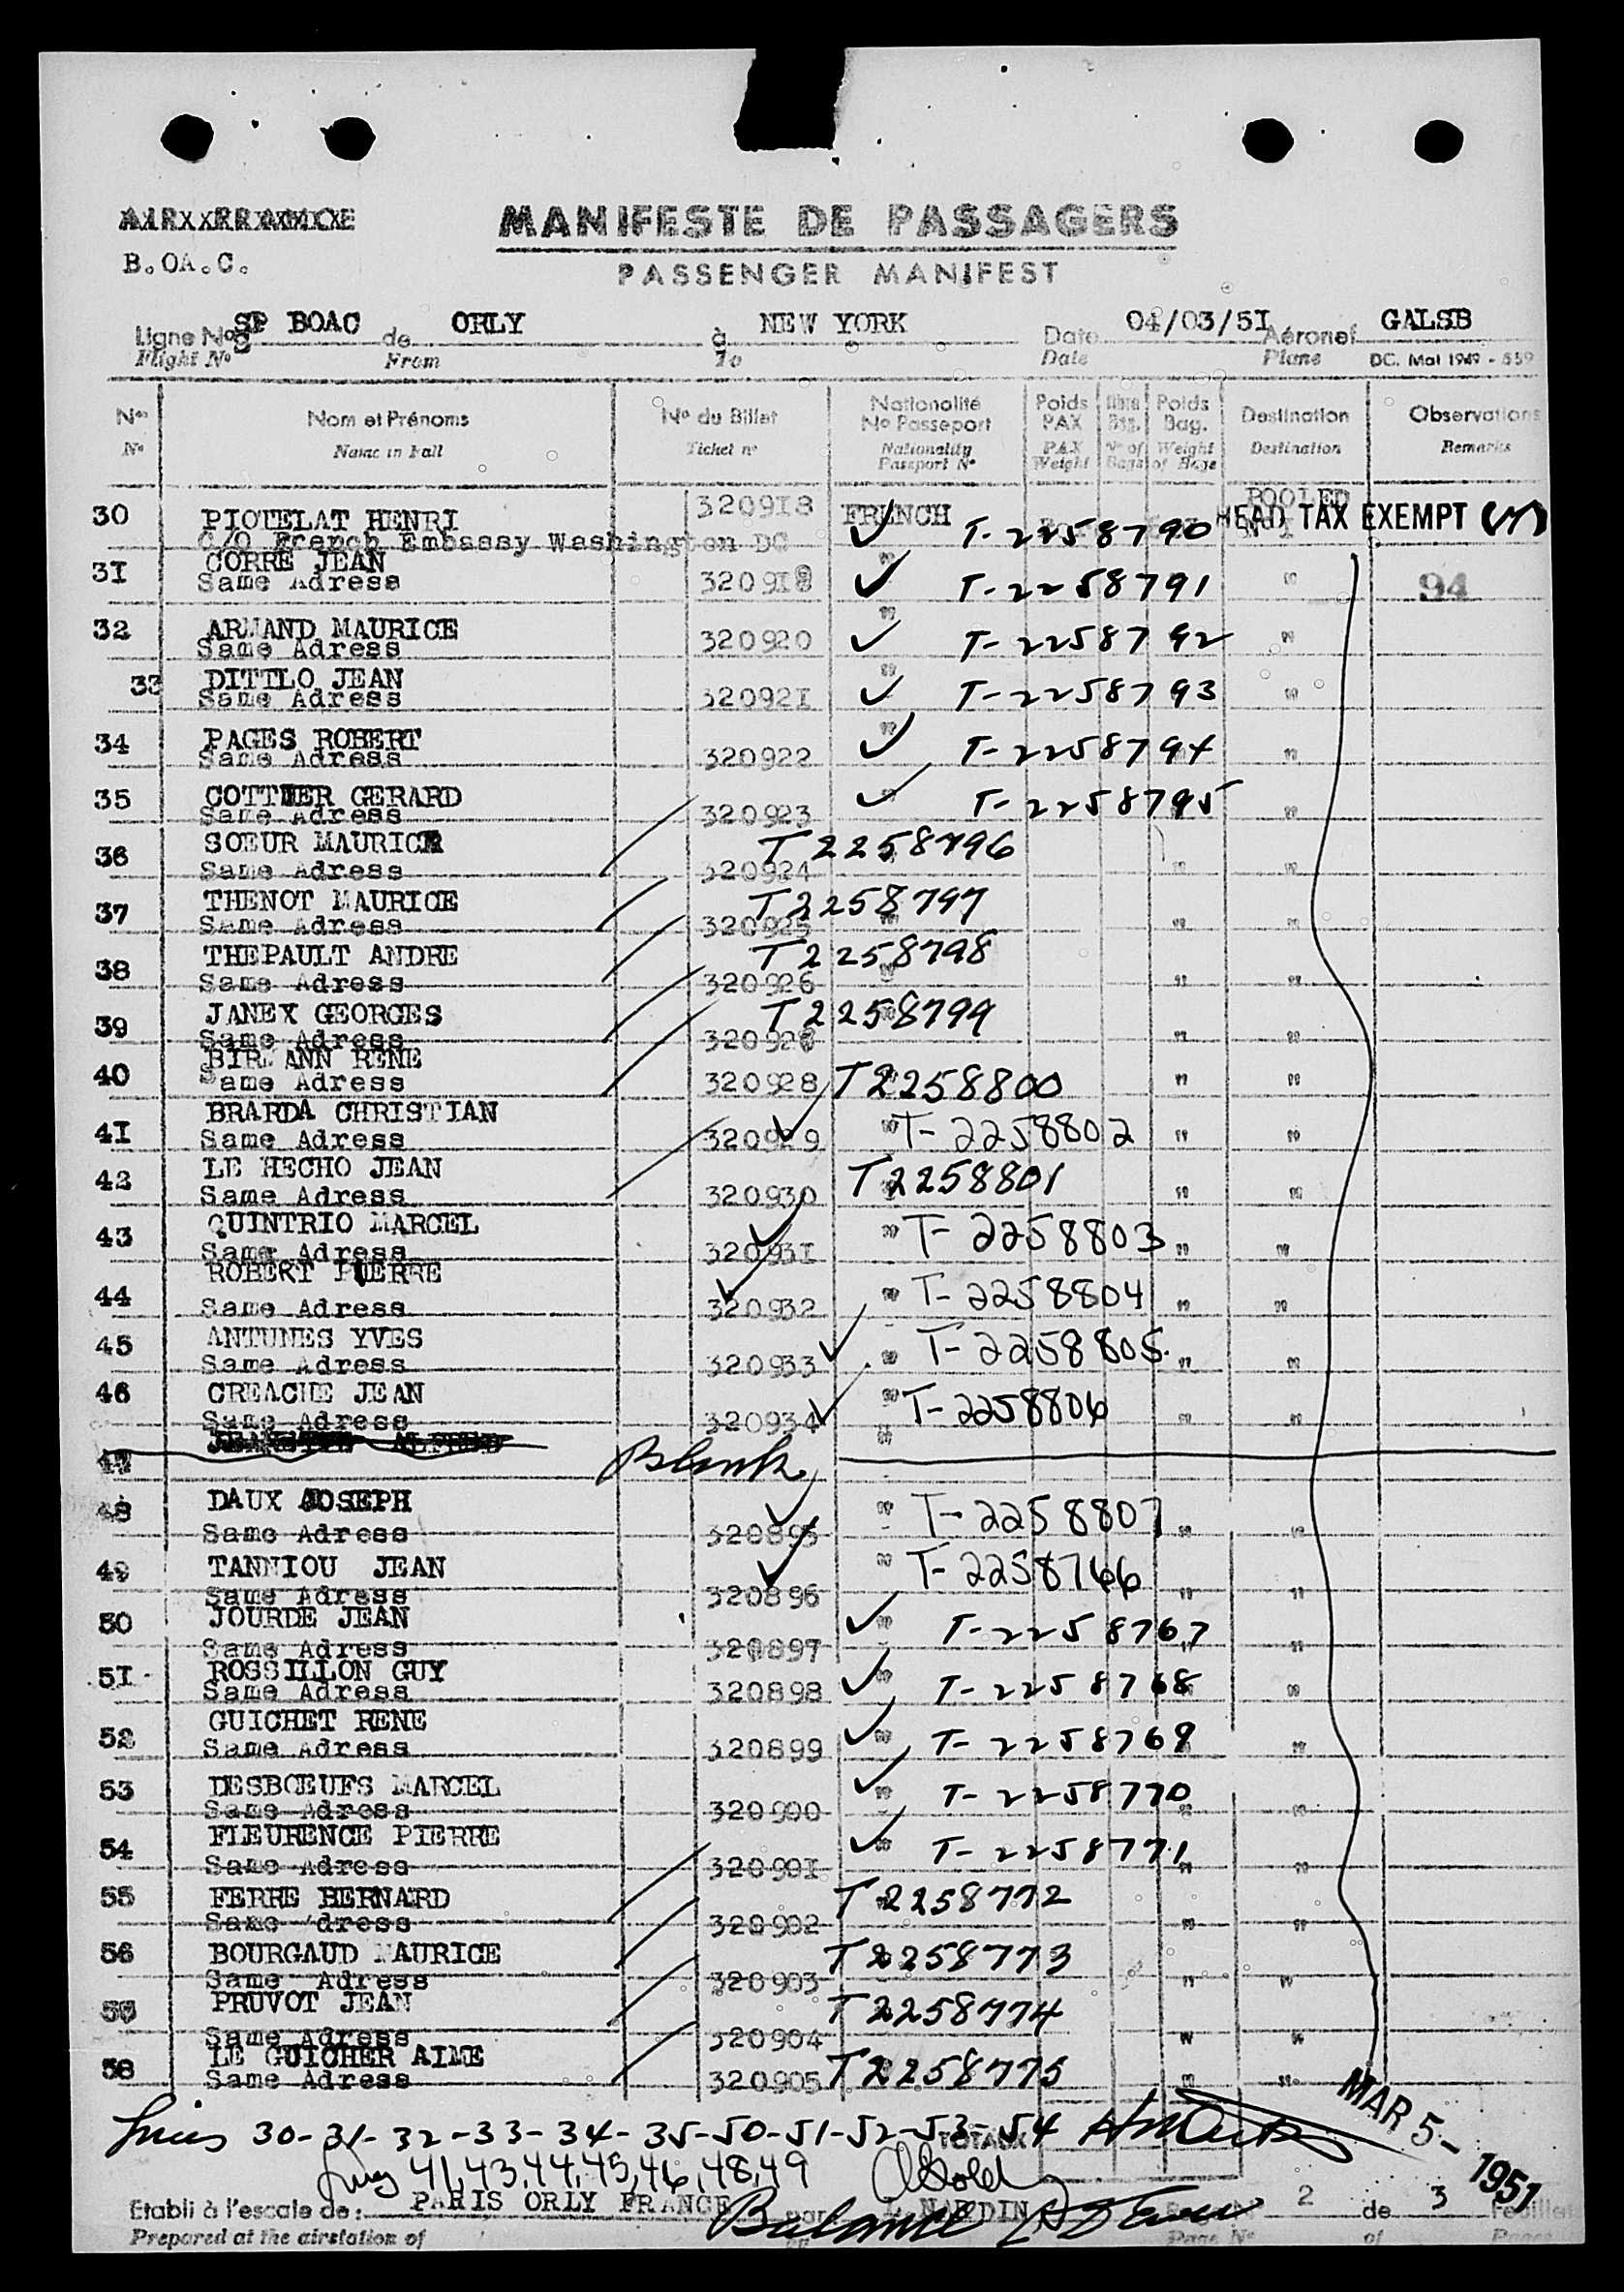 B.OA.C.
MANIFESTE DE PASSAGERS
PASSENGER MANIFEST
Ligne Nos SP BOAC de ORLY à NEW YORK Date 04/03/5I Aéronef GALSB
Flight No From To Date Plane DC. Mai 1949 - 559
Nos Nom et Prénoms No du Billet Nationalité No Passeport Poids PAX Nbre Bag. Poids Bag. Destination Observations
No Name in Full Ticket no Nationality Passport No PAX Weight No of Bags Weight of Bage Destination Remarks
POOLED
30 PIOTELAT HENRI 320918 FRENCH T-2258790 HEAD TAX EXEMPT (M)
C/O French Embassy Washington DC
3I CORRE JEAN
Same Adress 320919 " T-2258791 " 94
32 ARMAND MAURICE
Same Adress 320920 " T-2258792 "
33 DITTLO JEAN
Same Adress 32092I " T-2258793 "
34 PAGES ROBERT
Same Adress 320922 " T-2258794 "
35 COTTIER GERARD " T-2258795
Same Adress 320923 "
36 SOEUR MAURICE T2258796
Same Adress 320924 " "
37 THENOT MAURICE T2258797
Same Adress 320925 " " "
38 THEPAULT ANDRE T2258798
Same Adress 320926 " " "
39 JANEX GEORGES T2258799
Same Adress " " "
40 BIRMANN RENE
Same Adress 320928 T2258800 " "
4I BRARDA CHRISTIAN
Same Adress 320929 " T-2258802 " "
42 LE HECHO JEAN T2258801
Same Adress 320930 " " "
43 QUINTRIO MARCEL " T-2258803
Same Adress 32093I " "
44 ROBERT PIERRE " T-2258804
Same Adress 320932 " "
45 ANTUNES YVES T-2258805
Same Adress 320933 " " "
46 CREACHE JEAN " T-2258806
Same Adress 320934 " "
47 ALFRED Blank
48 DAUX JOSEPH " T-2258807
Same Adress 320895 " "
49 TANNIOU JEAN " T-2258766
Same Adress 320896 " "
50 JOURDE JEAN " T-2258767
Same Adress 320897 " "
5I ROSSILLON GUY
Same Adress 320898 " T-2258768 " "
52 GUICHET RENE " T-2258769
Same Adress 320899 " "
53 DESBŒUFS MARCEL " T-2258770
Same Adress 320900 " "
54 FLEURENCE PIERRE " T-2258771
Same Adress 32090I " "
55 FERRE BERNARD T2258772
Same Adress 320902 " "
56 BOURGAUD MAURICE T2258773
Same Adress 320903 " "
PRUVOT JEAN T2258774
Same Adress 320904 " "
58 LE GUICHER AIME
Same Adress 320905 T2258775 " "
MAR 5 - 1951
Lines 30-31-32-33-34-35-50-51-52-53-54
TOTAUX
Lines 41,43,44,45,46,48,49
Etabli à l'escale de: PARIS ORLY FRANCE par L NARDIN 2 de 3 Feuillets
Prepared at the airstation of by Balance Page No of Pages